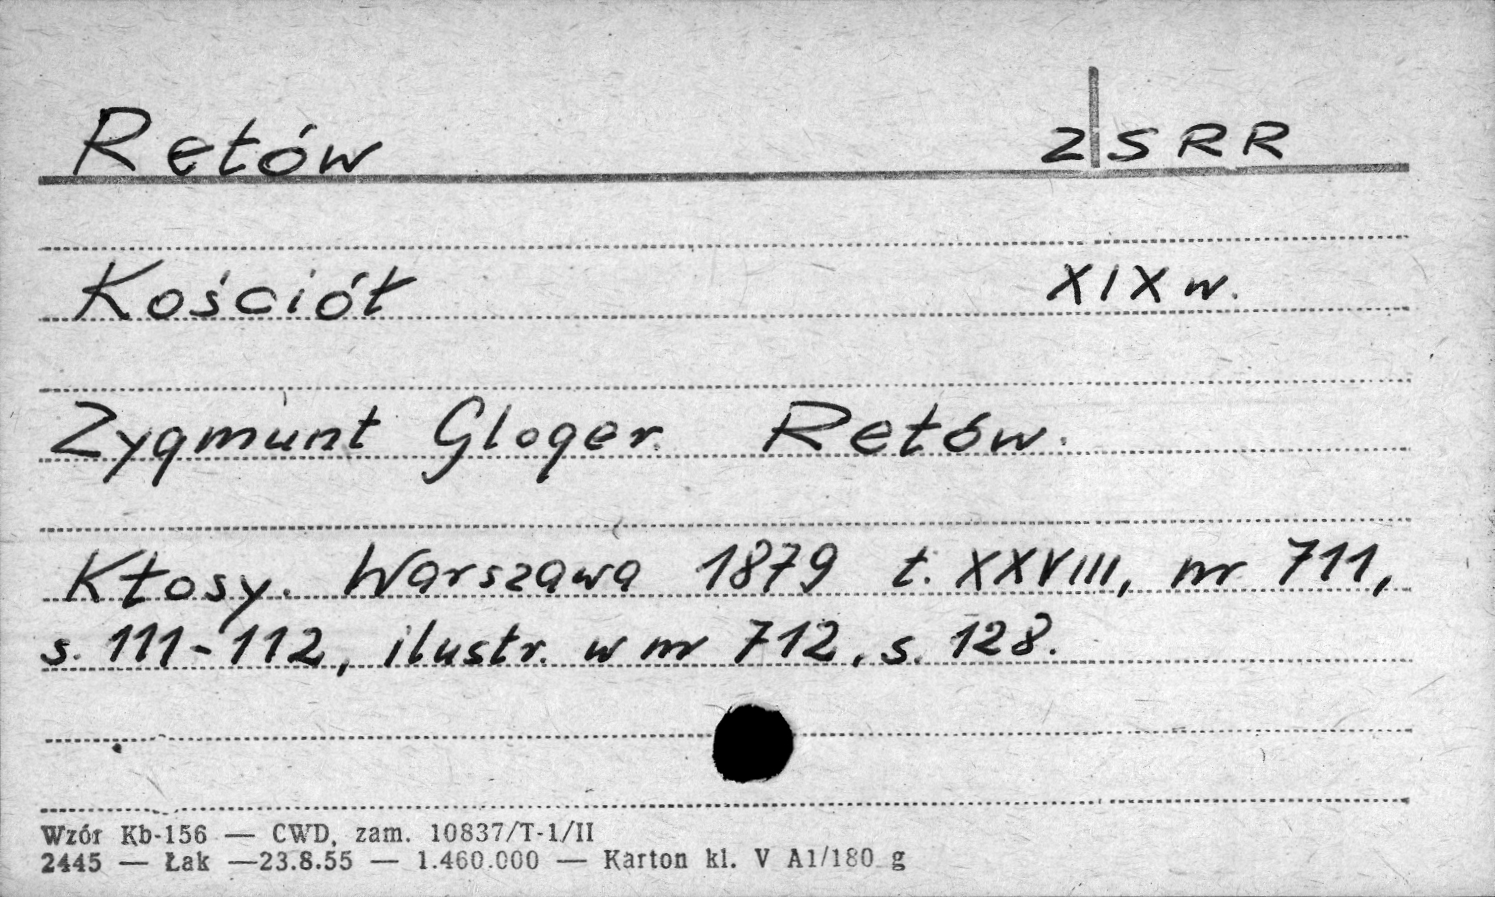 Retów ZSRR
Kościół XIX w.
Zygmunt Gloger. Retów.
Kłosy. Warszawa 1879 t. XXVIII, nr 711,
s. 111-112, ilustr. w nr 712, s. 128.
Wzór Kb-156 — CWD, zam. 10837/T-1/II
2445 — Łak —23.8.55 — 1.460.000 — Karton kl. V A1/180 g